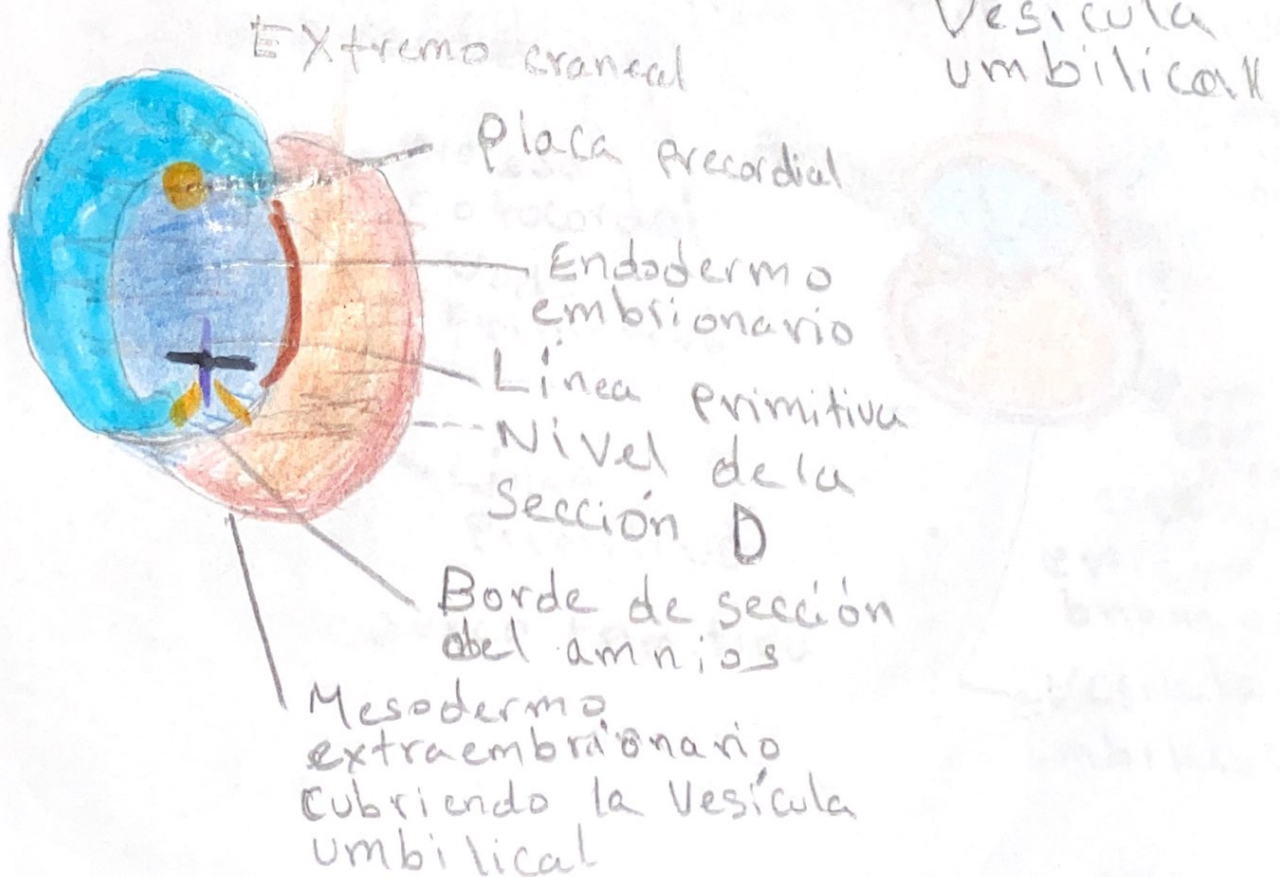 Vesícula
umbilical
Extremo craneal
Placa precordial
Endodermo
embrionario
Línea primitiva
Nivel de la
Sección D
Borde de sección
del amnios
Mesodermo
extraembrionario
cubriendo la Vesícula
umbilical